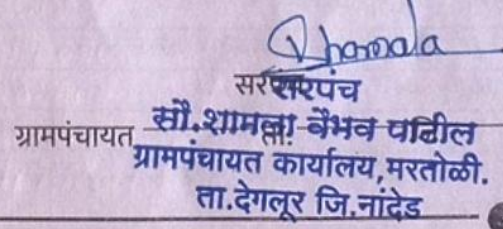 सरपंच
सरपंच
ग्रामपंचायत सौ.शामला वैभव पाटील
ग्रामपंचायत कार्यालय,मरतोळी.
ता.देगलूर जि.नांदेड